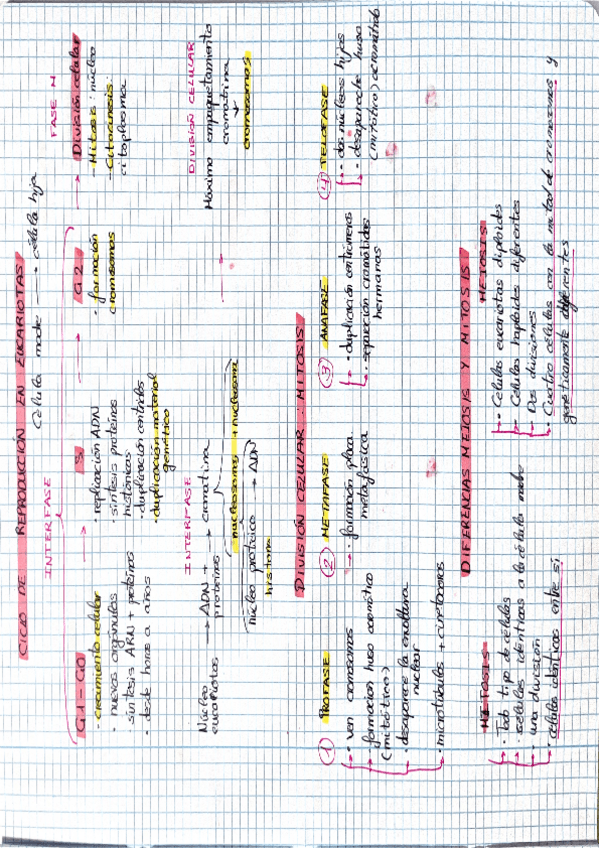 CICLO DE REPRODUCCIÓN EN EUCARIOTAS
Célula madre → célula hija
INTERFASE
FASE M
G1-G0 → S → G2 → División celular
- crecimiento celular
- nuevos orgánulos
- síntesis ARN + proteínas
- desde horas a años
- replicación ADN
- síntesis proteínas
histónicas
- duplicación centriolos
- duplicación material
genético
- formación
cromosomas
- Mitosis: núcleo
- Citocinesis:
citoplasma
INTERFASE
DIVISIÓN CELULAR
Núcleo
eucariotas
→ ADN +
proteínas
→ cromatina
nucleosoma + nucleosoma
núcleo proteico → ADN
histona
→
Máximo empaquetamiento
cromatina
↓
cromosomas
DIVISIÓN CELULAR: MITOSIS
① PROFASE
→ • ven cromosomas
→ • formación huso acromático
(mitótico)
→ • desaparece la envoltura
nuclear
→ • microtúbulos + cinetocoros
② METAFASE
→ • formación placa
metafásica
③ ANAFASE
→ • duplicación centrómeros
→ • separación cromátidas
hermanas
④ TELOFASE
→ • dos núcleos hijos
→ • desaparece huso
(mitótico) acromático
DIFERENCIAS MEIOSIS Y MITOSIS
MITOSIS
→ • Todo tipo de células
→ • células idénticas a la célula madre
→ • una división
→ • células idénticas entre sí
MEIOSIS
→ • Células eucariotas diploides
→ • Células haploides diferentes
→ • Dos divisiones
→ • Cuatro células con la mitad de cromosomas y
genéticamente diferentes